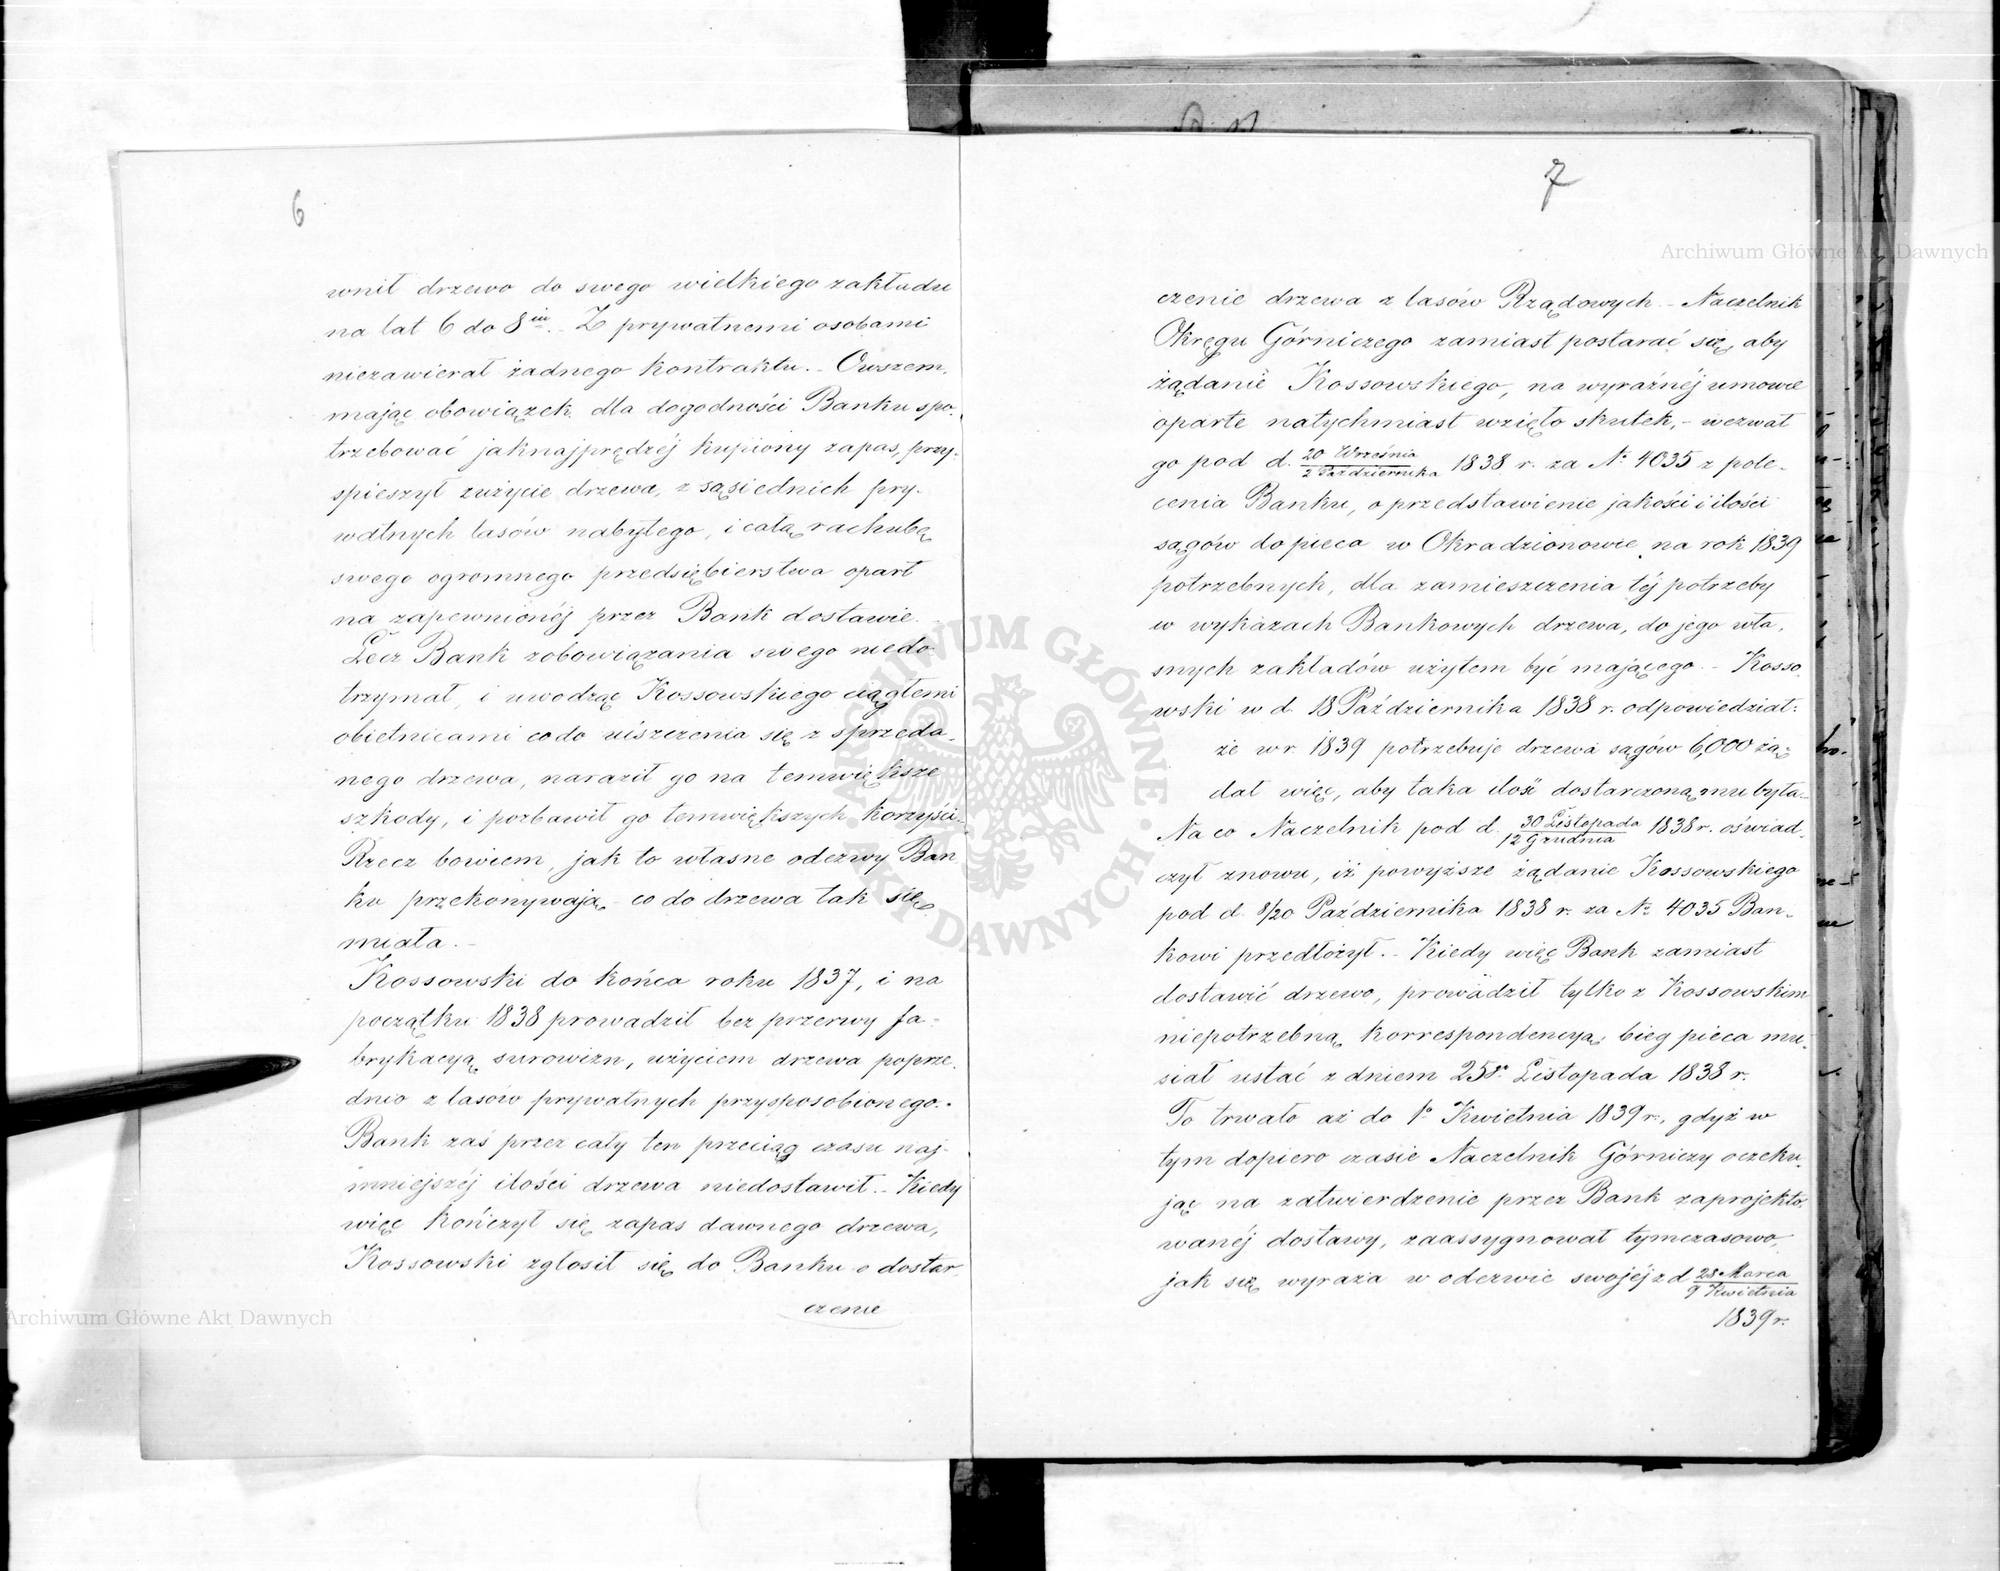 6
wnił drzewo do swego wielkiego zakładu
na lat 6 do 8iu. - Z prywatnemi osobami
niezawierał żadnego kontraktu. - Owszem,
mając obowiązek dla dogodności Banku spo-
trzebować jaknajprędzéj kupiony zapas, przy-
spieszył zużycie drzewa, z sąsiednich pry-
watnych lasów nabytego, i całą rachubę
swego ogromnego przedsiębierstwa oparł
na zapewnionéj przez Bank dostawie.
Lecz Bank zobowiązania swego niedo-
trzymał, i uwodząc Kossowskiego ciągłemi
obietnicami codo uiszczenia się z sprzeda-
nego drzewa, naraził go na temwiększe
szkody, i pozbawił go temwiększych korzyści.
Rzecz bowiem, jak to własne odezwy Ban-
ku przekonywają - co do drzewa tak się
miała. -
Kossowski do końca roku 1837, i na
początku 1838 prowadził bez przerwy fa-
brykacyą surowizn, użyciem drzewa poprze-
dnio z lasów prywatnych przysposobionego. -
Bank zaś przez cały ten przeciąg czasu naj-
mniejszéj ilości drzewa niedostawił. - Kiedy
więc kończył się zapas dawnego drzewa,
Kossowski zgłosił się do Banku o dostar-
czenie
7
czenie drzewa z lasów Rządowych. - Naczelnik
Okręgu Górniczego zamiast postarać się, aby
żądanie Kossowskiego, na wyraźnéj umowie
oparte natychmiast wzięło skutek, - wezwał
go pod d. 20 Września / 2 Października 1838 r. za No 4035 z pole-
cenia Banku, o przedstawienie jakości i ilości
sągów do pieca w Okradzionowie na rok 1839
potrzebnych, dla zamieszczenia téj potrzeby
w wykazach Bankowych drzewa, do jego wła-
snych zakładów użytem być mającego. - Kosso-
wski w d. 18 Października 1838 r. odpowiedział:
że w r. 1839 potrzebuje drzewa sągów 6,000 żą-
dał więc, aby taka ilość dostarczoną mu była. -
Na co Naczelnik pod d. 30 Listopada / 12 Grudnia 1838 r. oświad-
czył znowu, iż powyższe żądanie Kossowskiego
pod d. 8/20 Października 1838 r. za No 4035 Ban-
kowi przedłożył. - Kiedy więc Bank zamiast
dostawić drzewo, prowadził tylko z Kossowskim
niepotrzebną korrespondencyą, bieg pieca mu-
siał ustać z dniem 25go Listopada 1838 r.
To trwało aż do 1o Kwietnia 1839 r., gdyż w
tym dopiero czasie Naczelnik Górniczy oczeku-
jąc na zatwierdzenie przez Bank zaprojekto-
wanéj dostawy, zaassygnował tymczasowo,
jak się wyraża w odezwie swojéj z d 28 Marca / 9 Kwietnia
1839 r.
Archiwum Główne Akt Dawnych
Archiwum Główne Akt Dawnych
ARCHIWUM GŁÓWNE AKT DAWNYCH